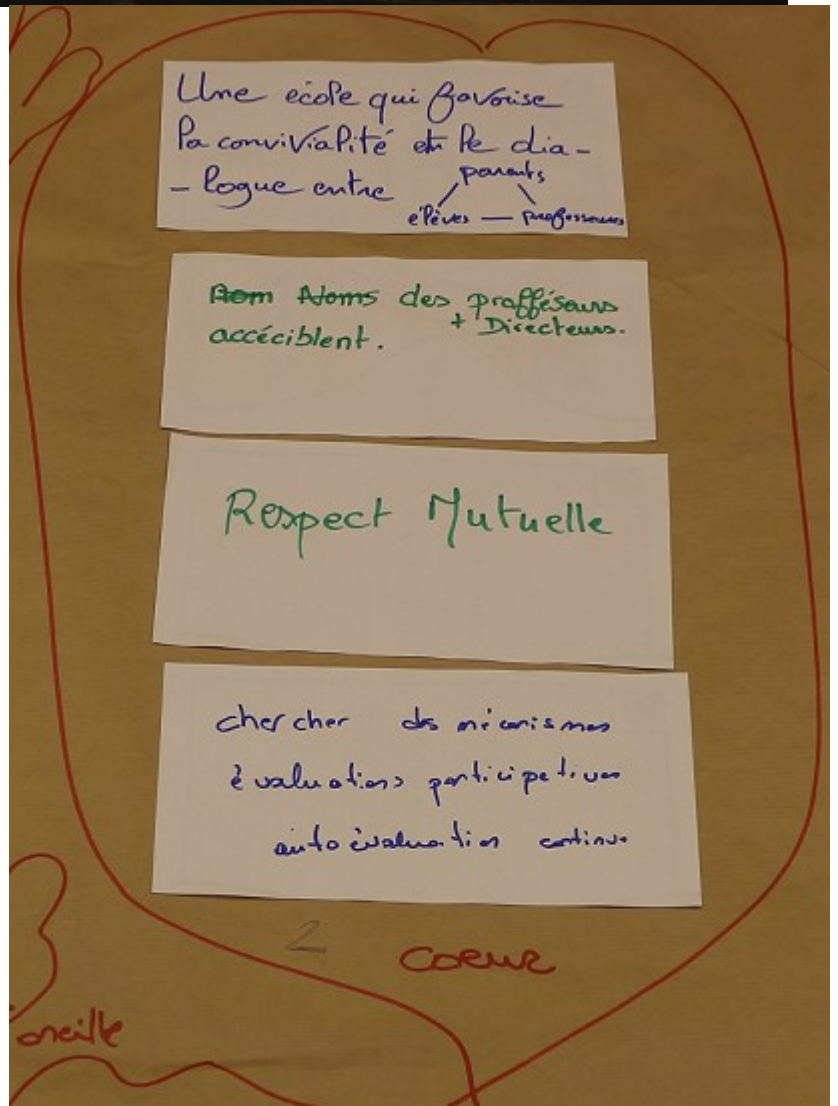 Une école qui favorise
la convivialité et le dia-
- logue entre
parents
élèves — professeurs
des profféseurs
+ Directeurs.
accéciblent.
Respect Mutuelle
chercher des mécanismes
évaluations participatives
auto évaluation continue
2
coeur
oreille